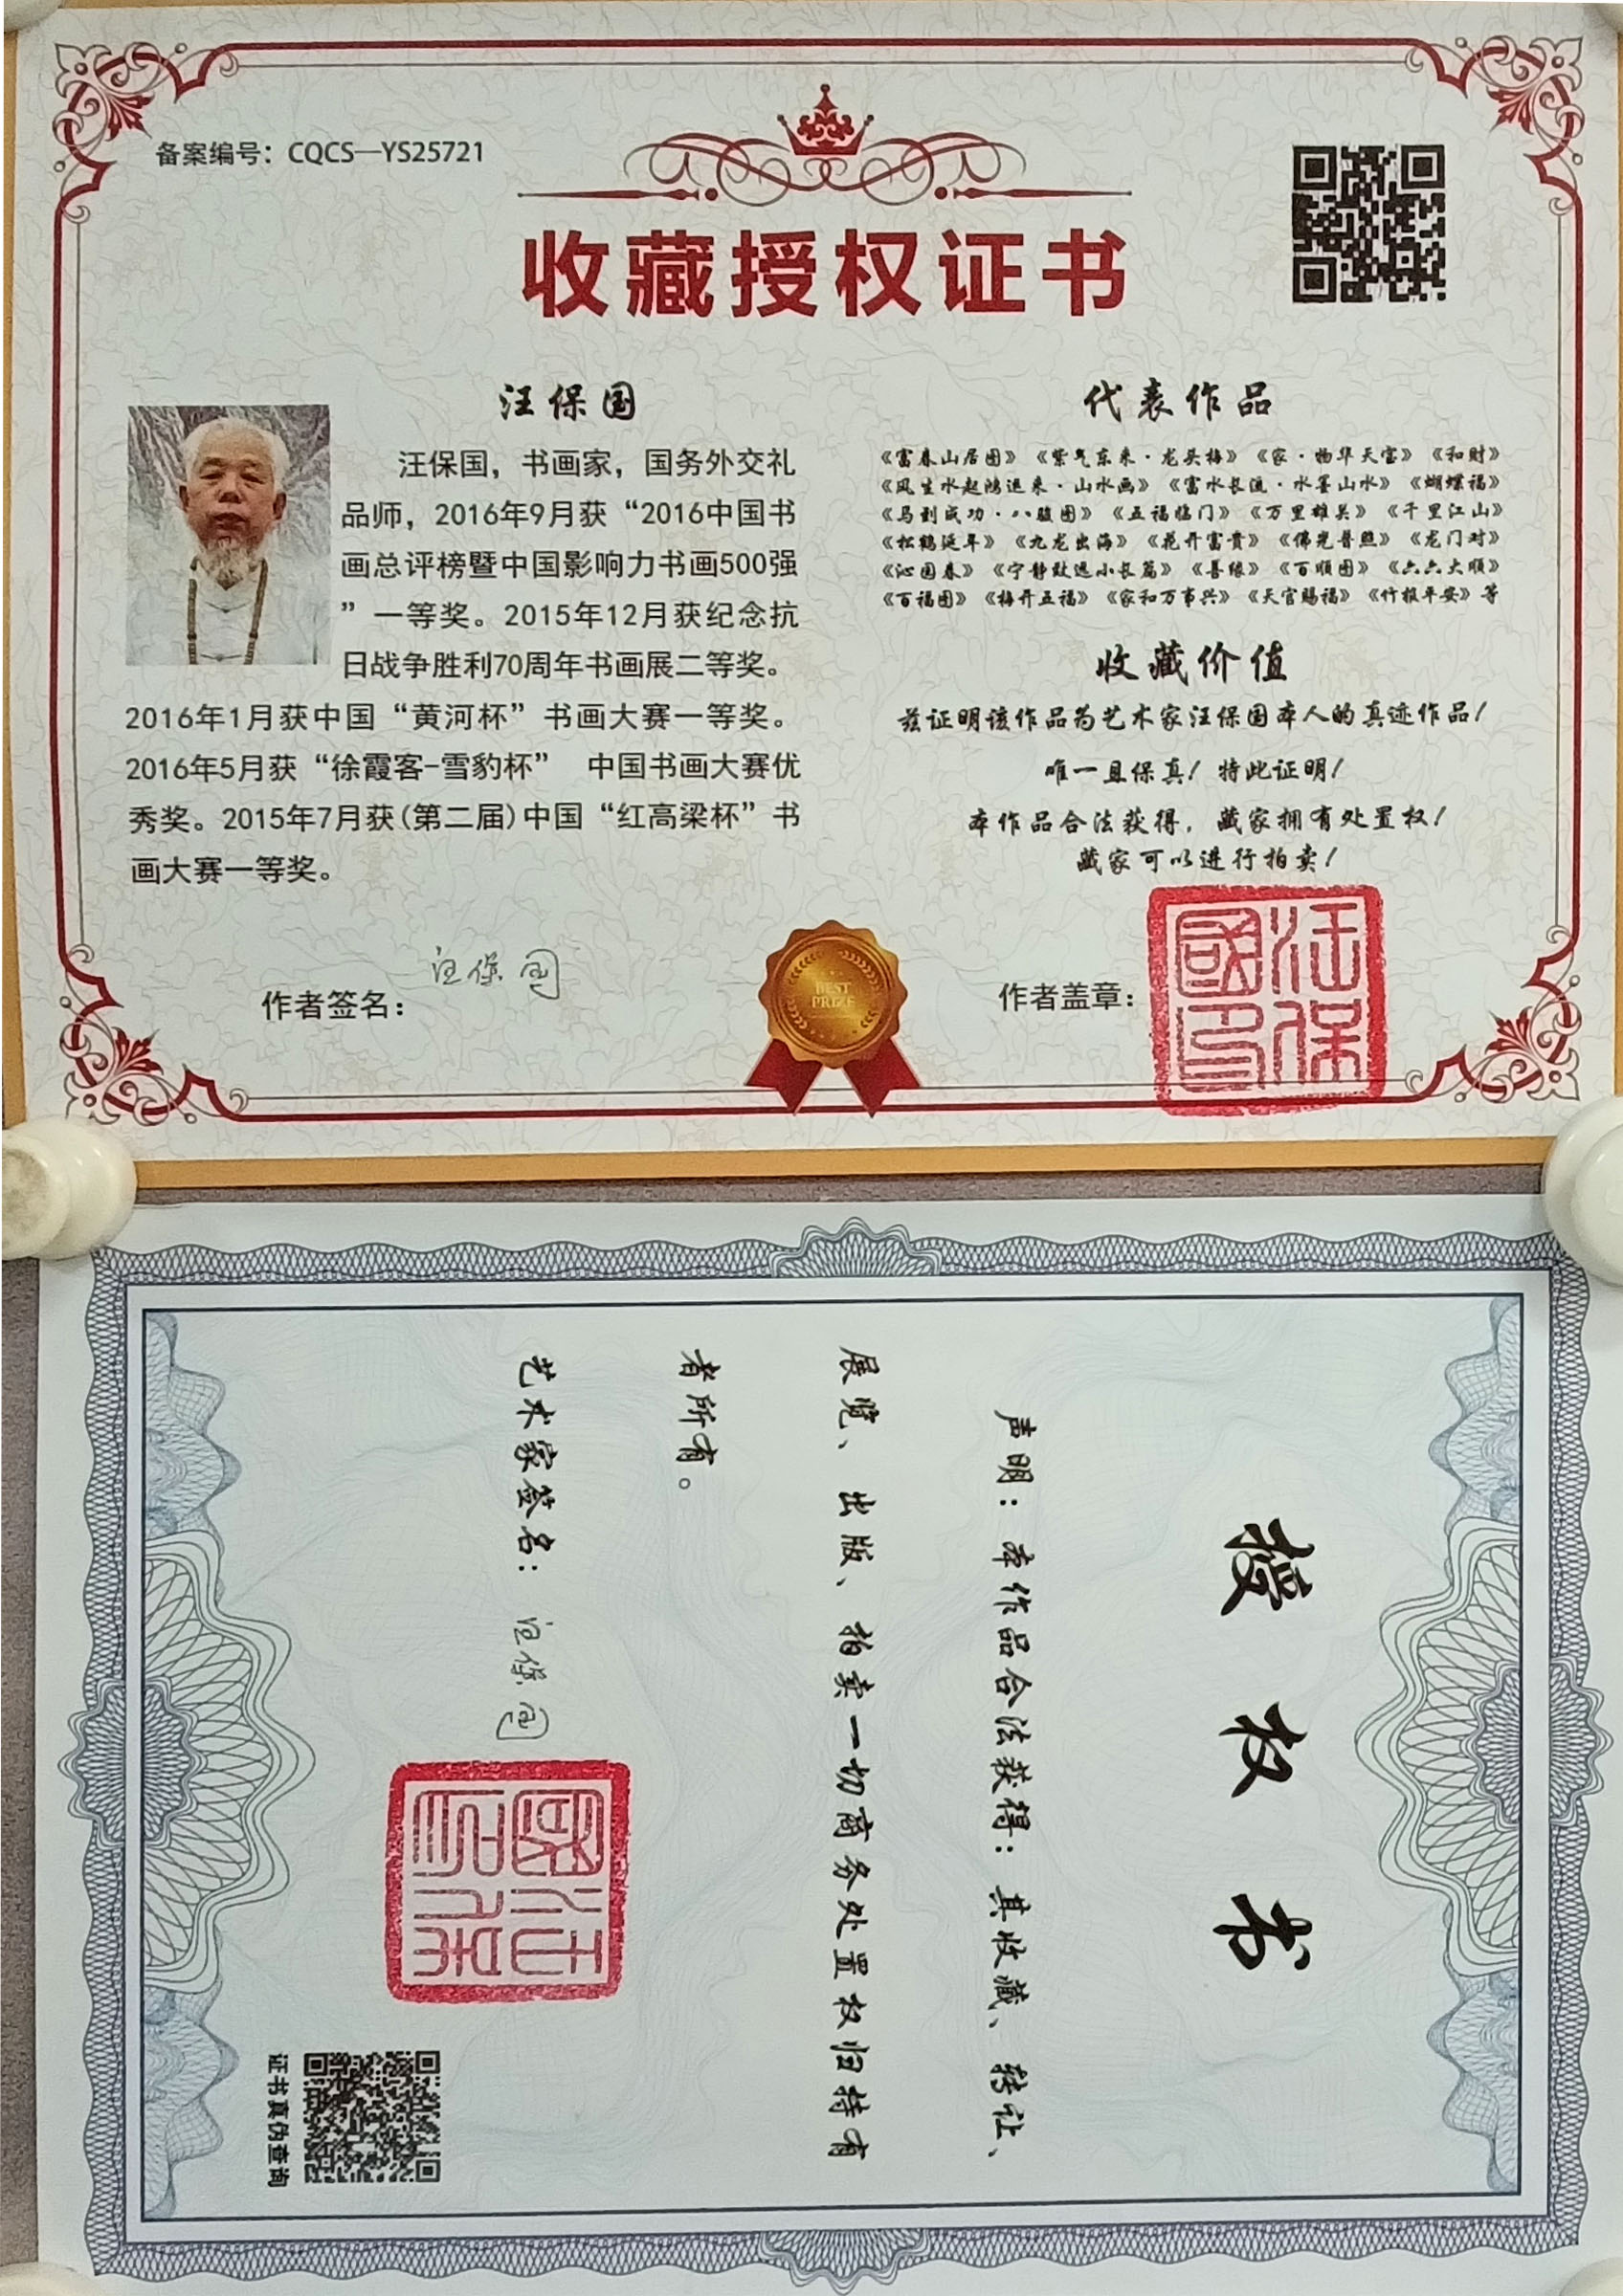 备案编号：CQCS—YS25721
收藏授权证书
汪保国
汪保国，书画家，国务外交礼
品师，2016年9月获“2016中国书
画总评榜暨中国影响力书画500强
”一等奖。2015年12月获纪念抗
日战争胜利70周年书画展二等奖。
2016年1月获中国“黄河杯”书画大赛一等奖。
2016年5月获“徐霞客-雪豹杯” 中国书画大赛优
秀奖。2015年7月获(第二届)中国“红高梁杯”书
画大赛一等奖。
代表作品
《富春山居图》《紫气东来·龙头梅》《家·物华天宝》《和财》
《风生水起鸿运来·山水画》《富水长流·水墨山水》《蝴蝶福》
《马到成功·八骏图》《五福临门》《万里雄关》《千里江山》
《松鹤延年》《九龙出海》《花开富贵》《佛光普照》《龙门对》
《沁园春》《宁静致远小长篇》《善缘》《百顺图》《六六大顺》
《百福图》《梅开五福》《家和万事兴》《天官赐福》《竹报平安》等
收藏价值
兹证明该作品为艺术家汪保国本人的真迹作品！
唯一且保真！特此证明！
本作品合法获得，藏家拥有处置权！
藏家可以进行拍卖！
作者签名：汪保国
BEST
PRIZE
作者盖章：
汪保國印
授权书
声明：本作品合法获得：其收藏、转让、
展览、出版、拍卖一切商务处置权归持有
者所有。
艺术家签名：汪保国
汪保國印
证书真伪查询